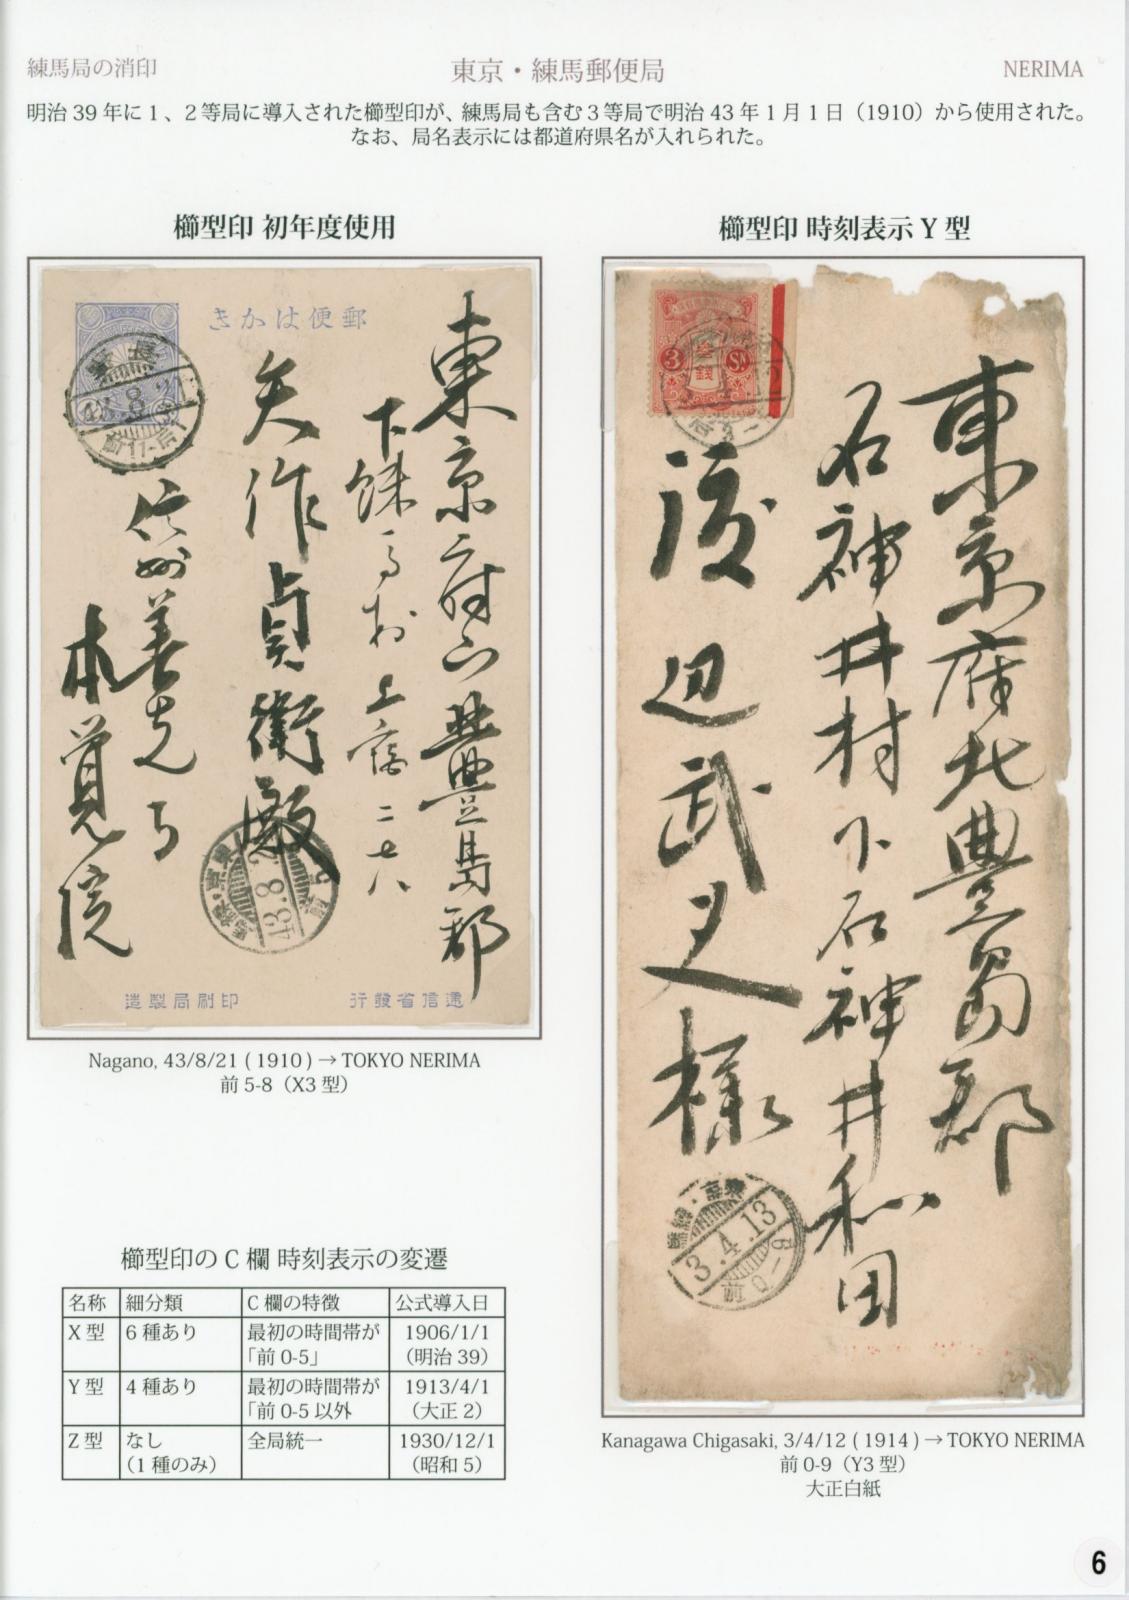 練馬局の消印
東京・練馬郵便局
NERIMA
明治 39 年に 1 、2 等局に導入された櫛型印が、練馬局も含む 3 等局で明治 43 年 1 月 1 日（1910）から使用された。
なお、局名表示には都道府県名が入れられた。
櫛型印 初年度使用
郵便はかき
東京府下北豊島郡
下練馬村上宿二七八
矢作貞衛殿
信州善光寺
本覚院
43.8.2
逓信省発行
印刷局製造
Nagano, 43/8/21 ( 1910 ) → TOKYO NERIMA
前 5-8（X3 型）
櫛型印 時刻表示 Y 型
3 SN
東京府北豊島郡
石神井村下石神井和田
渡辺武史様
東京・練馬
3.4.13
前0-9
Kanagawa Chigasaki, 3/4/12 ( 1914 ) → TOKYO NERIMA
前 0-9（Y3 型）
大正白紙
櫛型印の C 欄 時刻表示の変遷
名称 細分類 C 欄の特徴 公式導入日
X 型 6 種あり 最初の時間帯が「前 0-5」 1906/1/1（明治 39）
Y 型 4 種あり 最初の時間帯が「前 0-5 以外 1913/4/1（大正 2）
Z 型 なし（1 種のみ） 全局統一 1930/12/1（昭和 5）
6